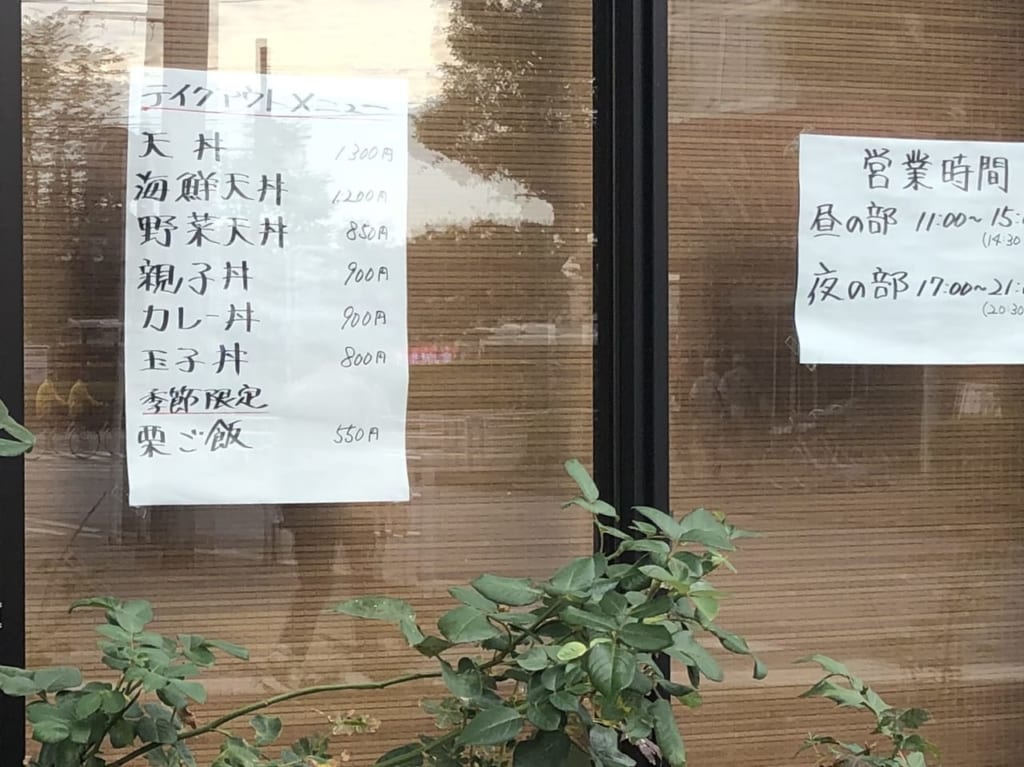 テイクアウトメニュー
天丼 1300円
海鮮天丼 1,200円
野菜天丼 850円
親子丼 900円
カレー丼 900円
玉子丼 800円
季節限定
栗ご飯 550円
営業時間
昼の部 11:00～15:
(14:30
夜の部 17:00～21:
(20:30